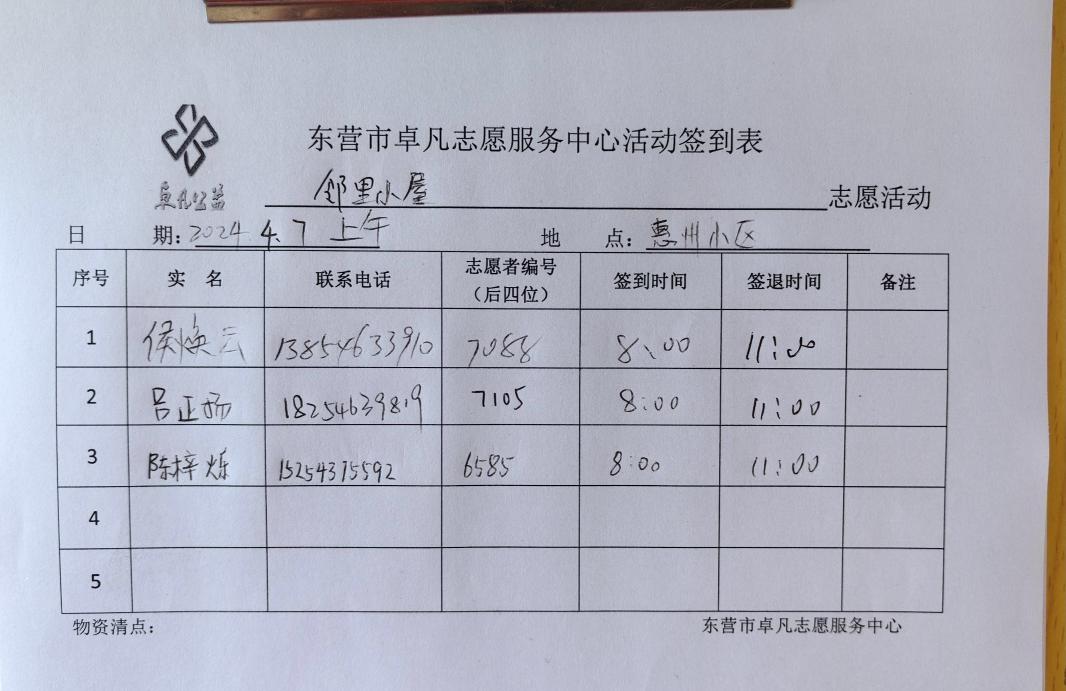 东营市卓凡志愿服务中心活动签到表
卓凡公益
邻里小屋 志愿活动
日 期：2024 4.7 上午 地 点：惠州小区
序号 实 名 联系电话 志愿者编号（后四位） 签到时间 签退时间 备注
1 侯焕云 13854633910 7088 8:00 11:00
2 吕正扬 18254639819 7105 8:00 11:00
3 陈梓烁 15254375592 6585 8:00 11:00
4
5
物资清点： 东营市卓凡志愿服务中心